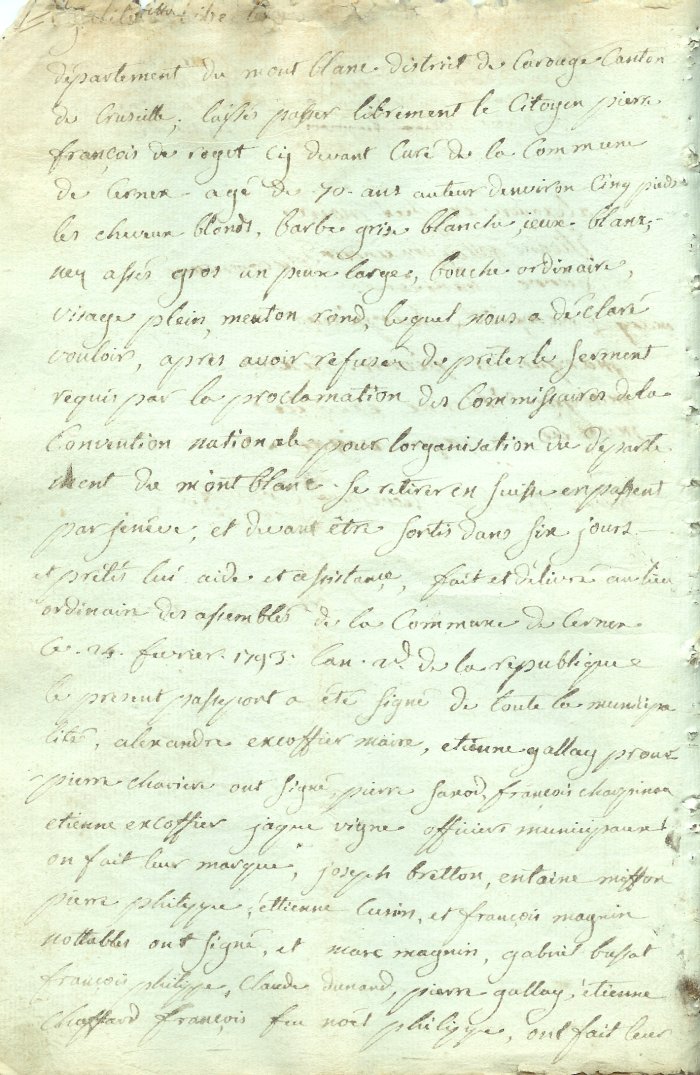 département du mont blanc district de Carouge Canton
de Cruseille; laissés passer librement le Citoyen pierre
françois de roget Cy devant Curé de la Commune
de Cernex agé de 70 ans auteur denviron Cinq pieds
les cheveux blonds, Barbe grise blanche, ieux blanz,
nez assés gros un peux large, bouche ordinaire,
visage plein, menton rond, lequel nous a déclaré
vouloir, apres avoir refuser de prêter le serment
requis par la proclamation des Commissaires de la
Convention nationale pour lorganisation du départe
ment du mont blanc se retirer en suisse en passent
par jenève, et devant être sortis dans six jours
et prêtés lui aide et assistance, fait et délivré au lieu
ordinaire des assemblés de la Commune de Cernex
le 24 fevrier 1793 lan 2d de la republique
le present passeport a été signé de toute la municipa
lité, alexandre excoffier maire, etienne gallay procur
pierre chariere ont signé, pierre françois
etienne excoffier jaque vigne officiers municipaux
on fait leur marque, joseph bretton, entaine miffon
pierre philippe, ettienne Cusin, et françois magnin
nottables ont signé, et marc magnin, gabriel bussat
françois philippe, Claude dunand, pierre gallay, etienne
chaffard françois feu noël philippe, ont fait leur